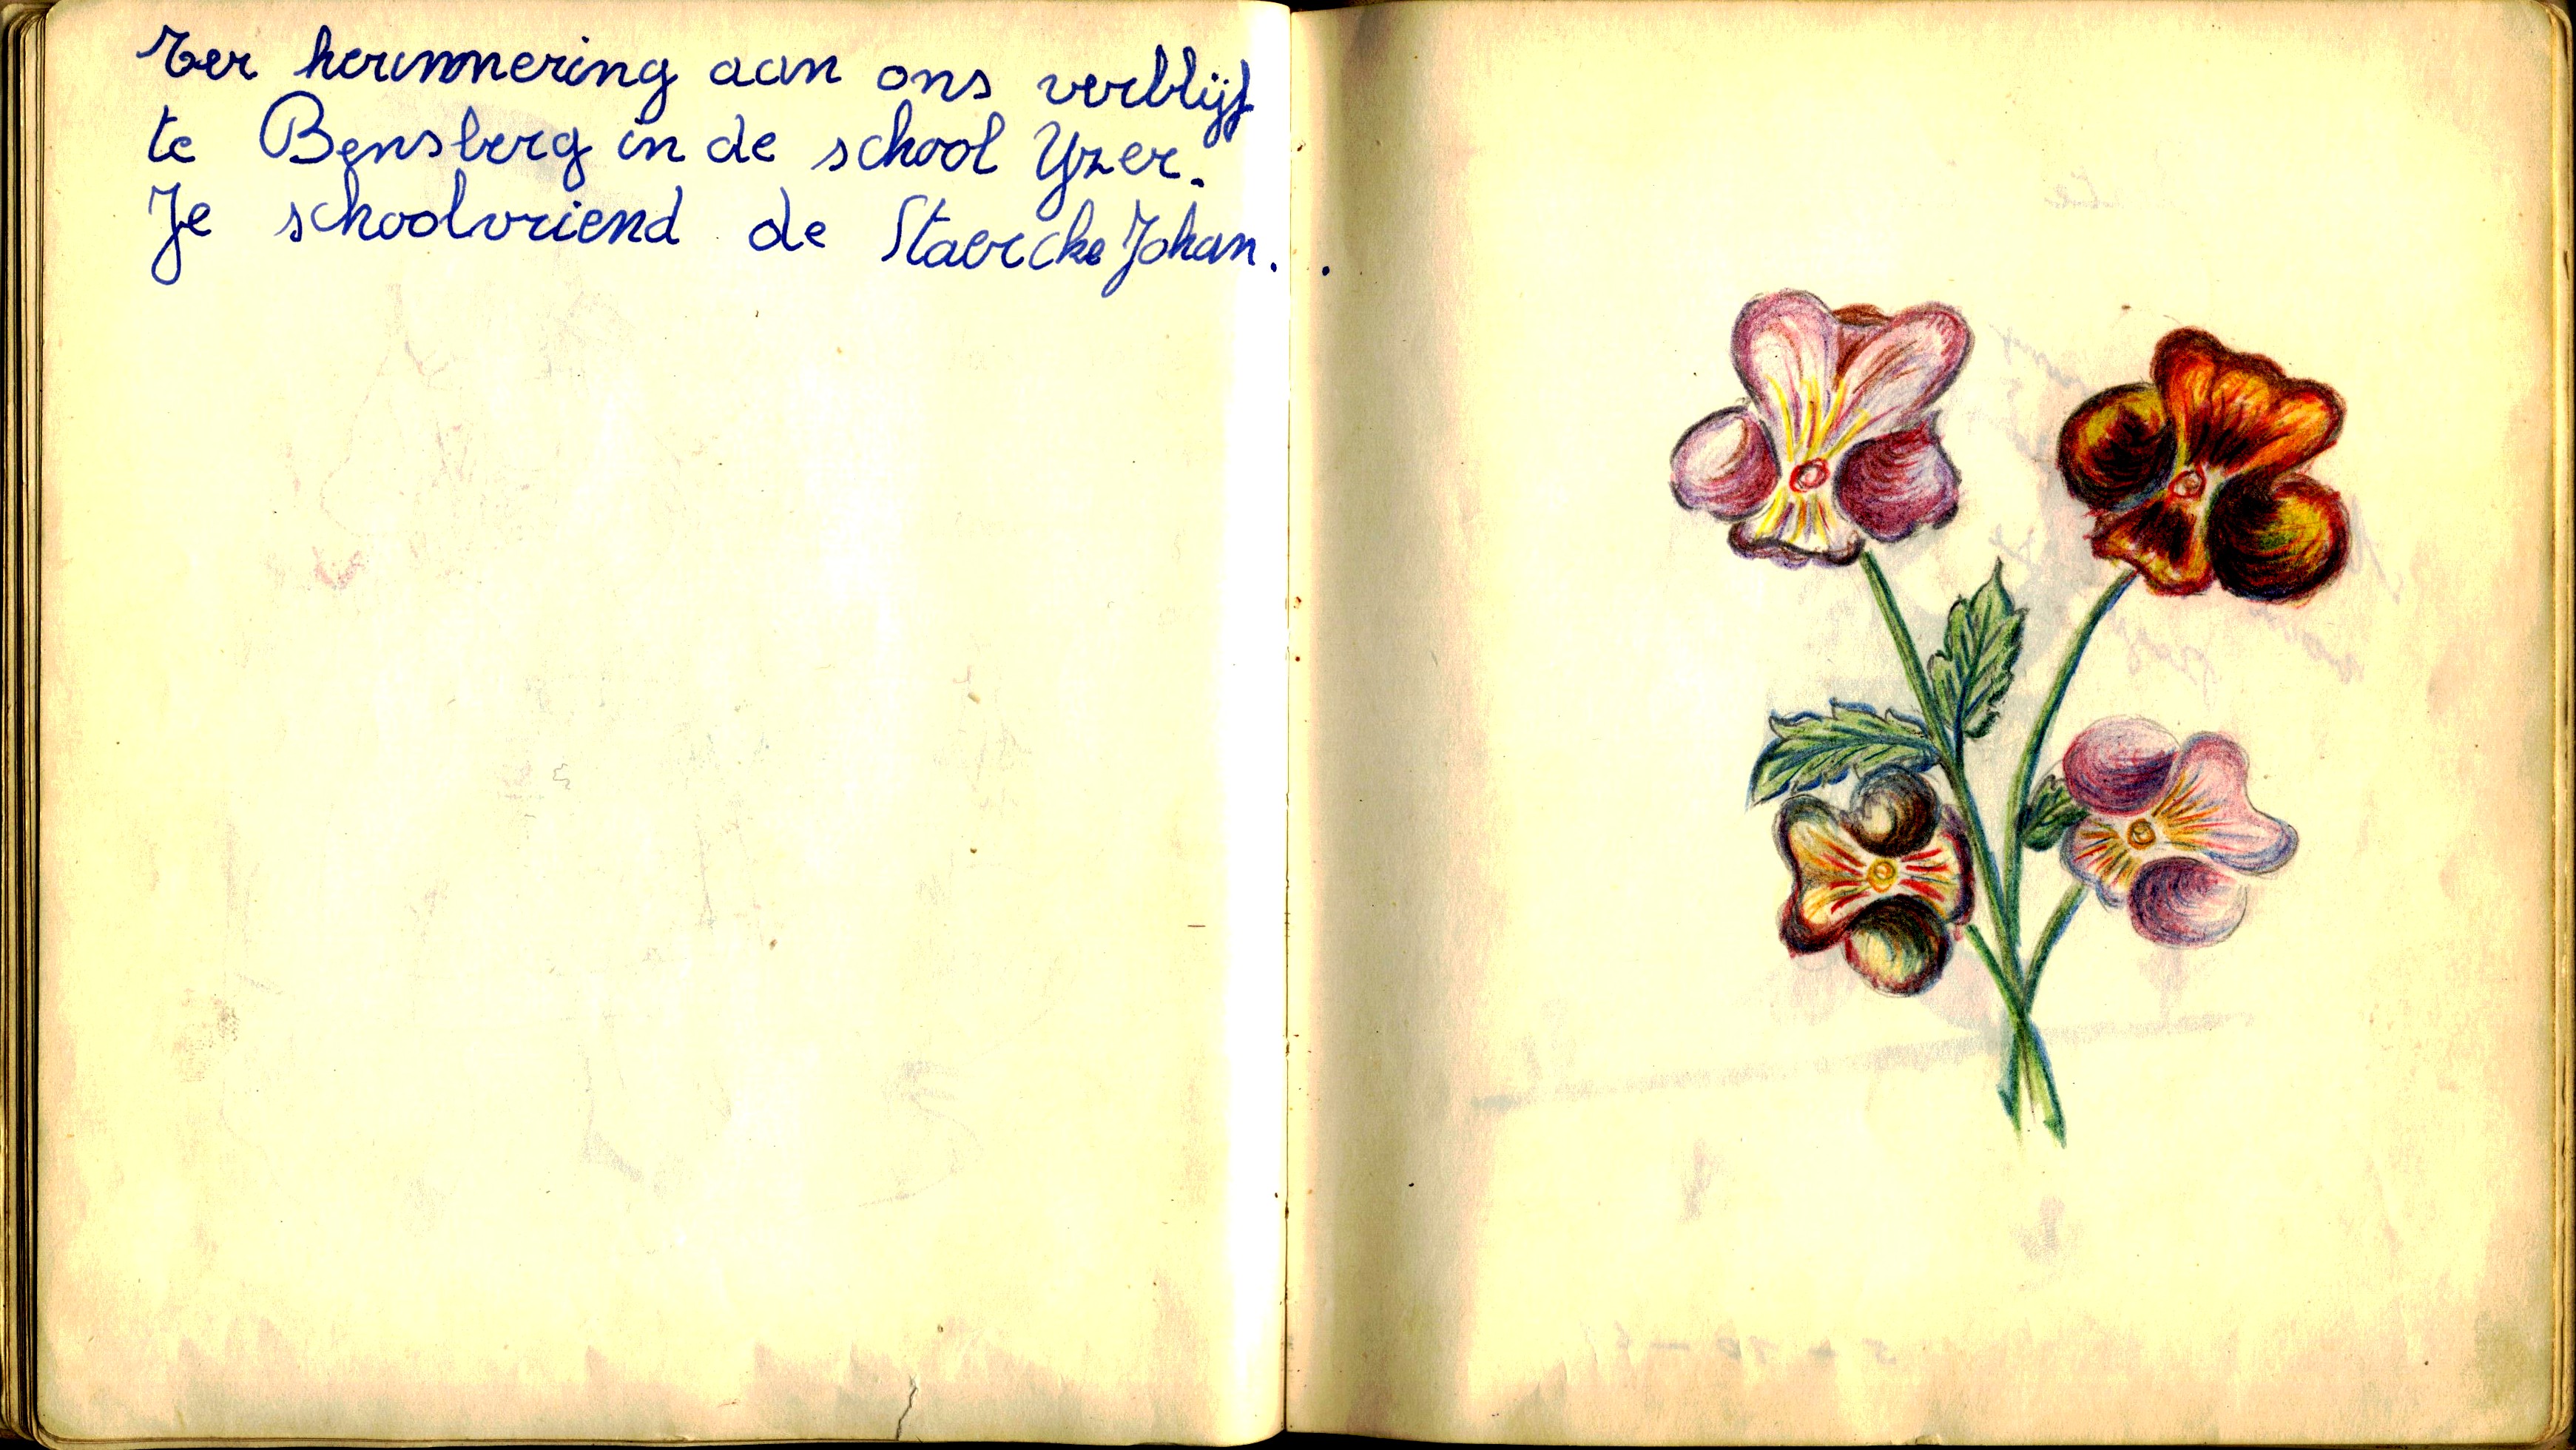 Ter herinnering aan ons verblijf
te Bensberg in de school Yzer.
Je schoolvriend de Staercke Johan.